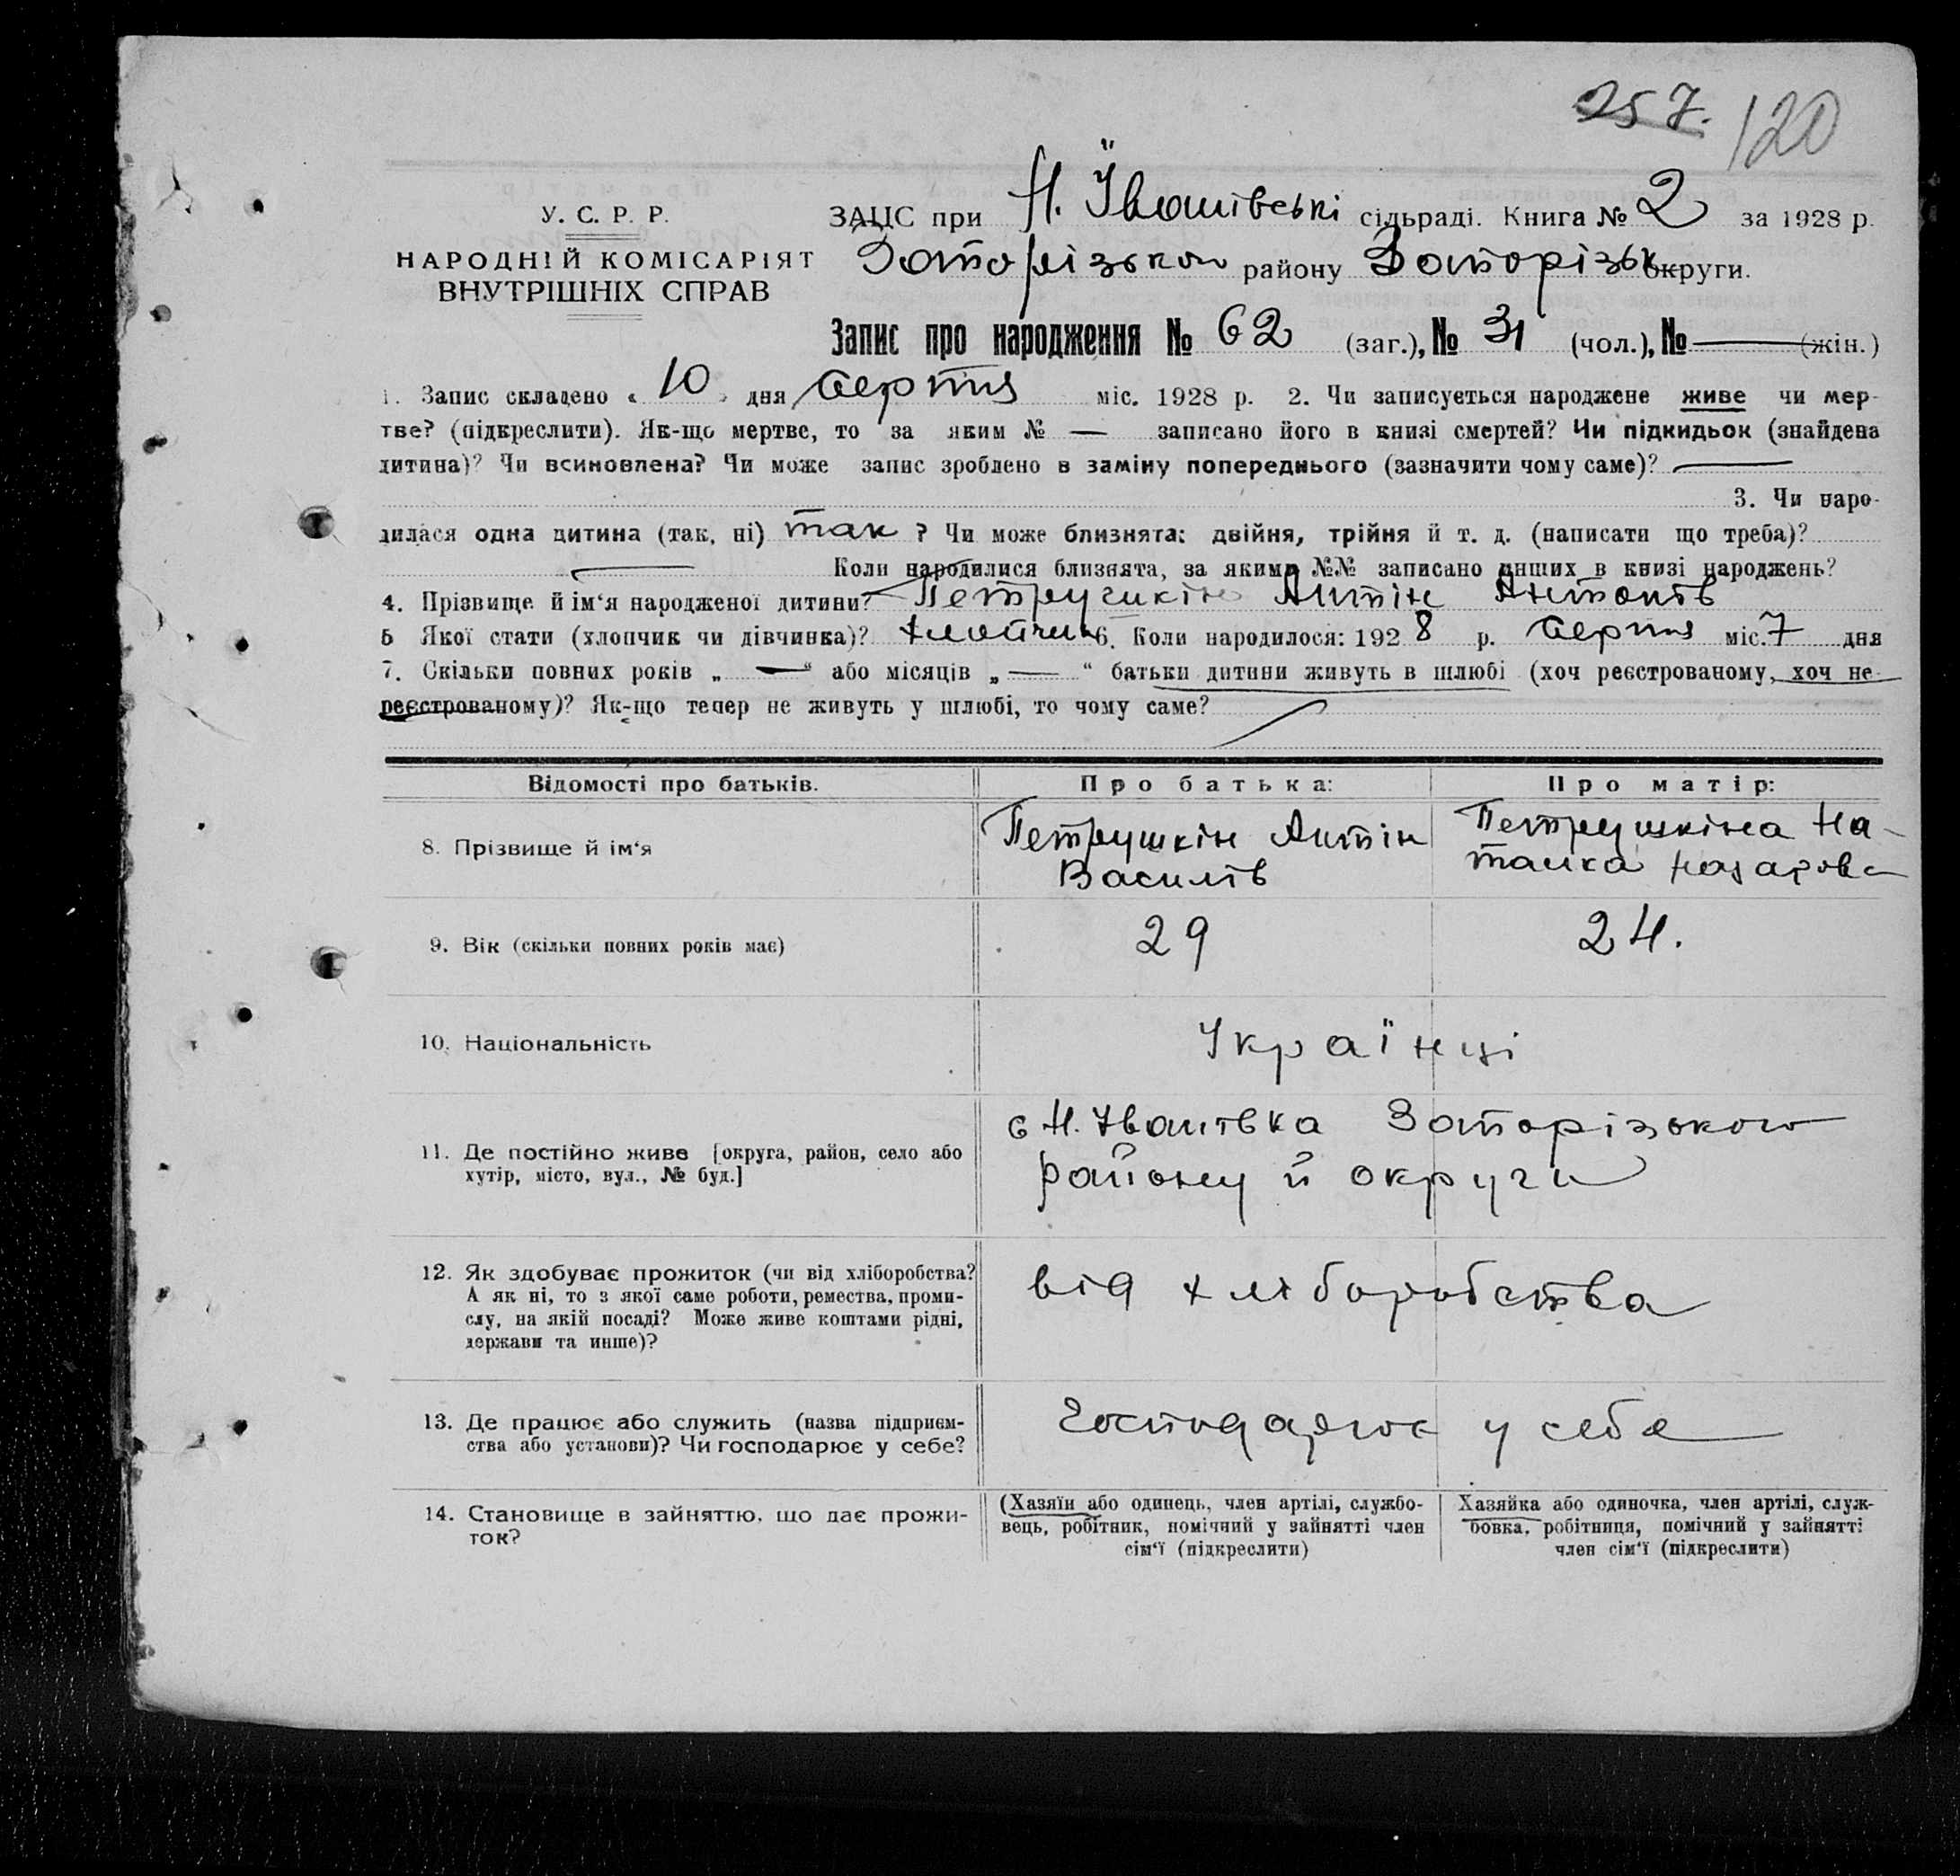 257. 120
У. С. Р. Р.
НАРОДНІЙ КОМІСАРІЯТ
ВНУТРІШНІХ СПРАВ
ЗАЦС при Н. Іванівські сільраді. Книга № 2 за 1928 р.
Запорізького району Запорізьк округи.
Запис про народження № 62 (заг.), № 31 (чол.), № — (жін.)
1. Запис складено « 10 » дня Серпня міс. 1928 р. 2. Чи записується народжене живе чи мер-
тве? (підкреслити). Як-що мертве, то за яким № — записано його в книзі смертей? Чи підкидьок (знайдена
дитина)? Чи всиновлена? Чи може запис зроблено в заміну попереднього (зазначити чому саме)? —
3. Чи наро-
дилася одна дитина (так, ні) так ? Чи може близнята: двійня, трійня й т. д. (написати що треба)?
— Коли народилися близнята, за якими №№ записано инших в книзі народжень?
4. Прізвище й ім‘я народженої дитини? Петрушкін Антін Антонів
5 Якої стати (хлопчик чи дівчинка)? хлопчик 6. Коли народилося: 1928 р. Серпня міс. 7 дня
7. Скільки повних років „ — “ або місяців „ — “ батьки дитини живуть в шлюбі (хоч реєстрованому, хоч не-
реєстрованому)? Як-що тепер не живуть у шлюбі, то чому саме?
Відомості про батьків. Про батька: Про матір:
8. Прізвище й ім‘я Петрушкін Антін Петрушкіна На-
Василів талка Назарова
9. Вік (скільки повних років має) 29 24.
10. Національність Українці
11. Де постійно живе [округа, район, село або с Н. Іванівка Запорізького
хутір, місто, вул., № буд.] району й округи
12. Як здобуває прожиток (чи від хліборобства? від хліборобства
А як ні, то з якої саме роботи, ремества, проми-
слу, на якій посаді? Може живе коштами рідні,
держави та инше)?
13. Де працює або служить (назва підприєм- Господарює у себе
ства або установи)? Чи господарює у себе?
14. Становище в зайняттю, що дає прожи- (Хазяїн або одинець, член артілі, службо- Хазяйка або одиночка, член артілі, служ-
ток? вець, робітник, помічний у зайнятті член бовка, робітниця, помічний у зайнятті
сім‘ї (підкреслити) член сім‘ї (підкреслити)